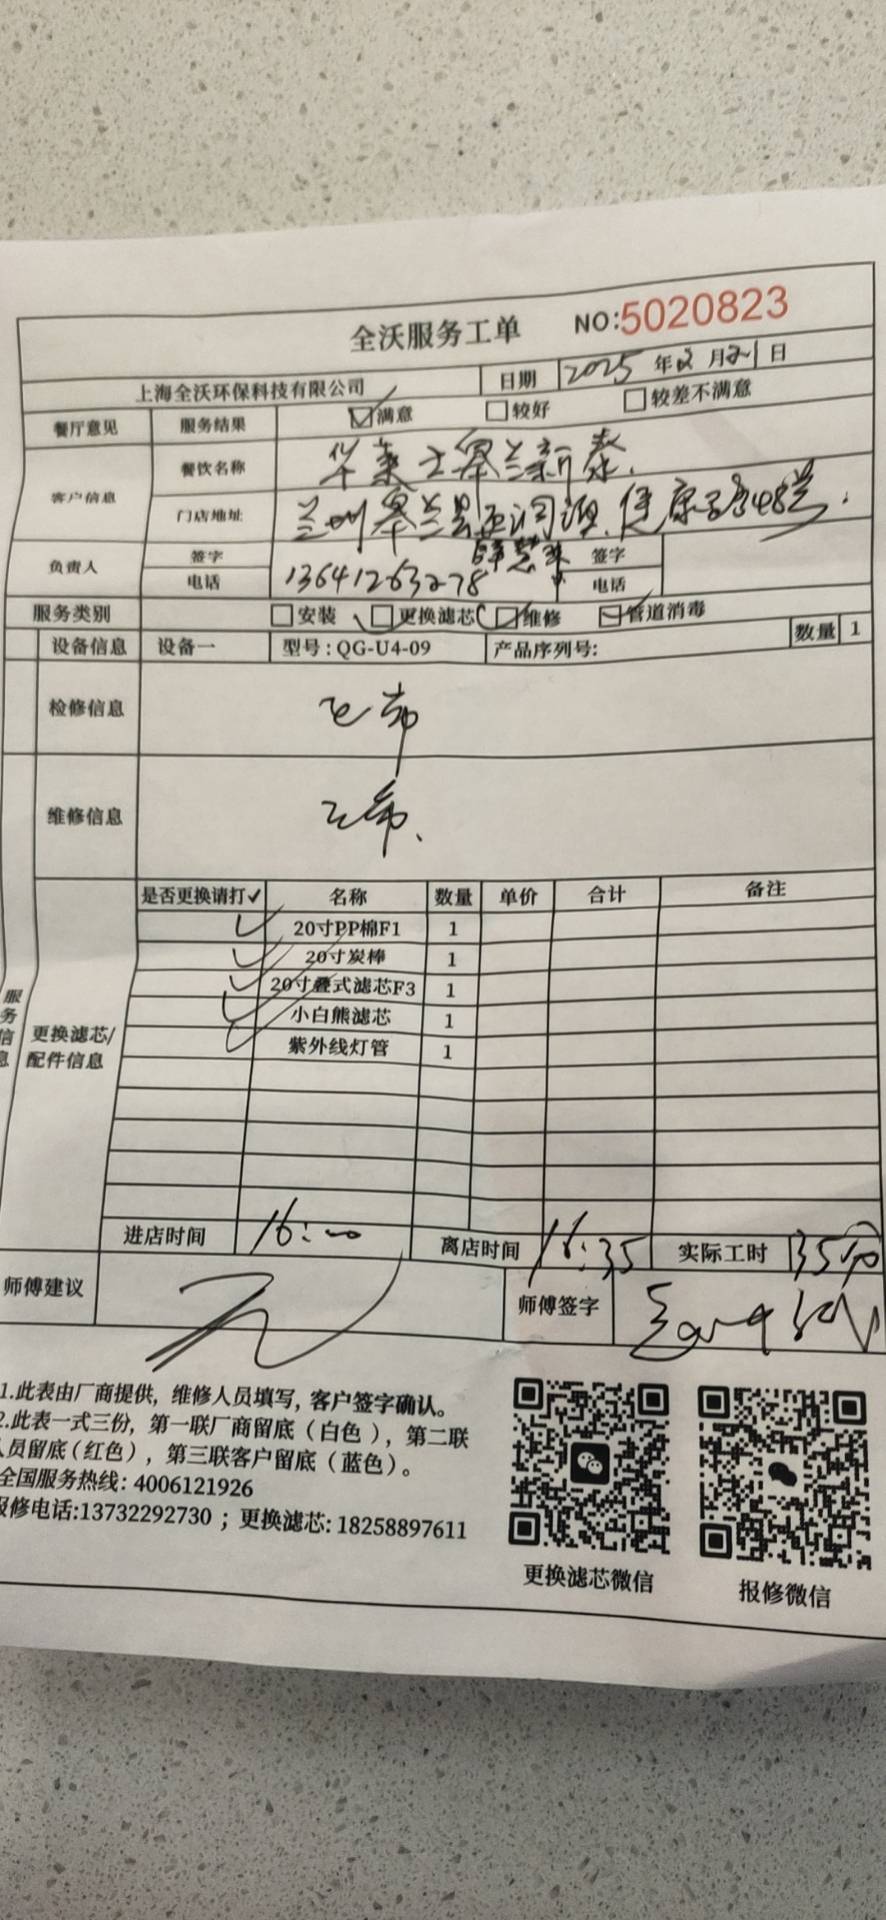 全沃服务工单 NO:5020823
上海全沃环保科技有限公司 日期 2025年2月21日
餐厅意见 服务结果 满意 较好 较差不满意
客户信息 餐饮名称 华莱士皋兰新泰.
门店地址 兰州皋兰县 健康 48号.
负责人 签字 签字
电话 13641263278 电话
服务类别 安装 更换滤芯 维修 管道消毒
设备信息 设备一 型号:QG-U4-09 产品序列号: 数量 1
检修信息 正常
维修信息 正常.
服务信息
更换滤芯/配件信息
是否更换请打✓ 名称 数量 单价 合计 备注
✓ 20寸PP棉F1 1
✓ 20寸炭棒 1
✓ 20寸叠式滤芯F3 1
✓ 小白熊滤芯 1
✓ 紫外线灯管 1
进店时间 16:00 离店时间 16:35 实际工时 35分
师傅建议 无 师傅签字
1.此表由厂商提供,维修人员填写,客户签字确认。
2.此表一式三份,第一联厂商留底(白色),第二联
人员留底(红色),第三联客户留底(蓝色)。
全国服务热线: 4006121926
报修电话:13732292730 ; 更换滤芯: 18258897611
更换滤芯微信 报修微信